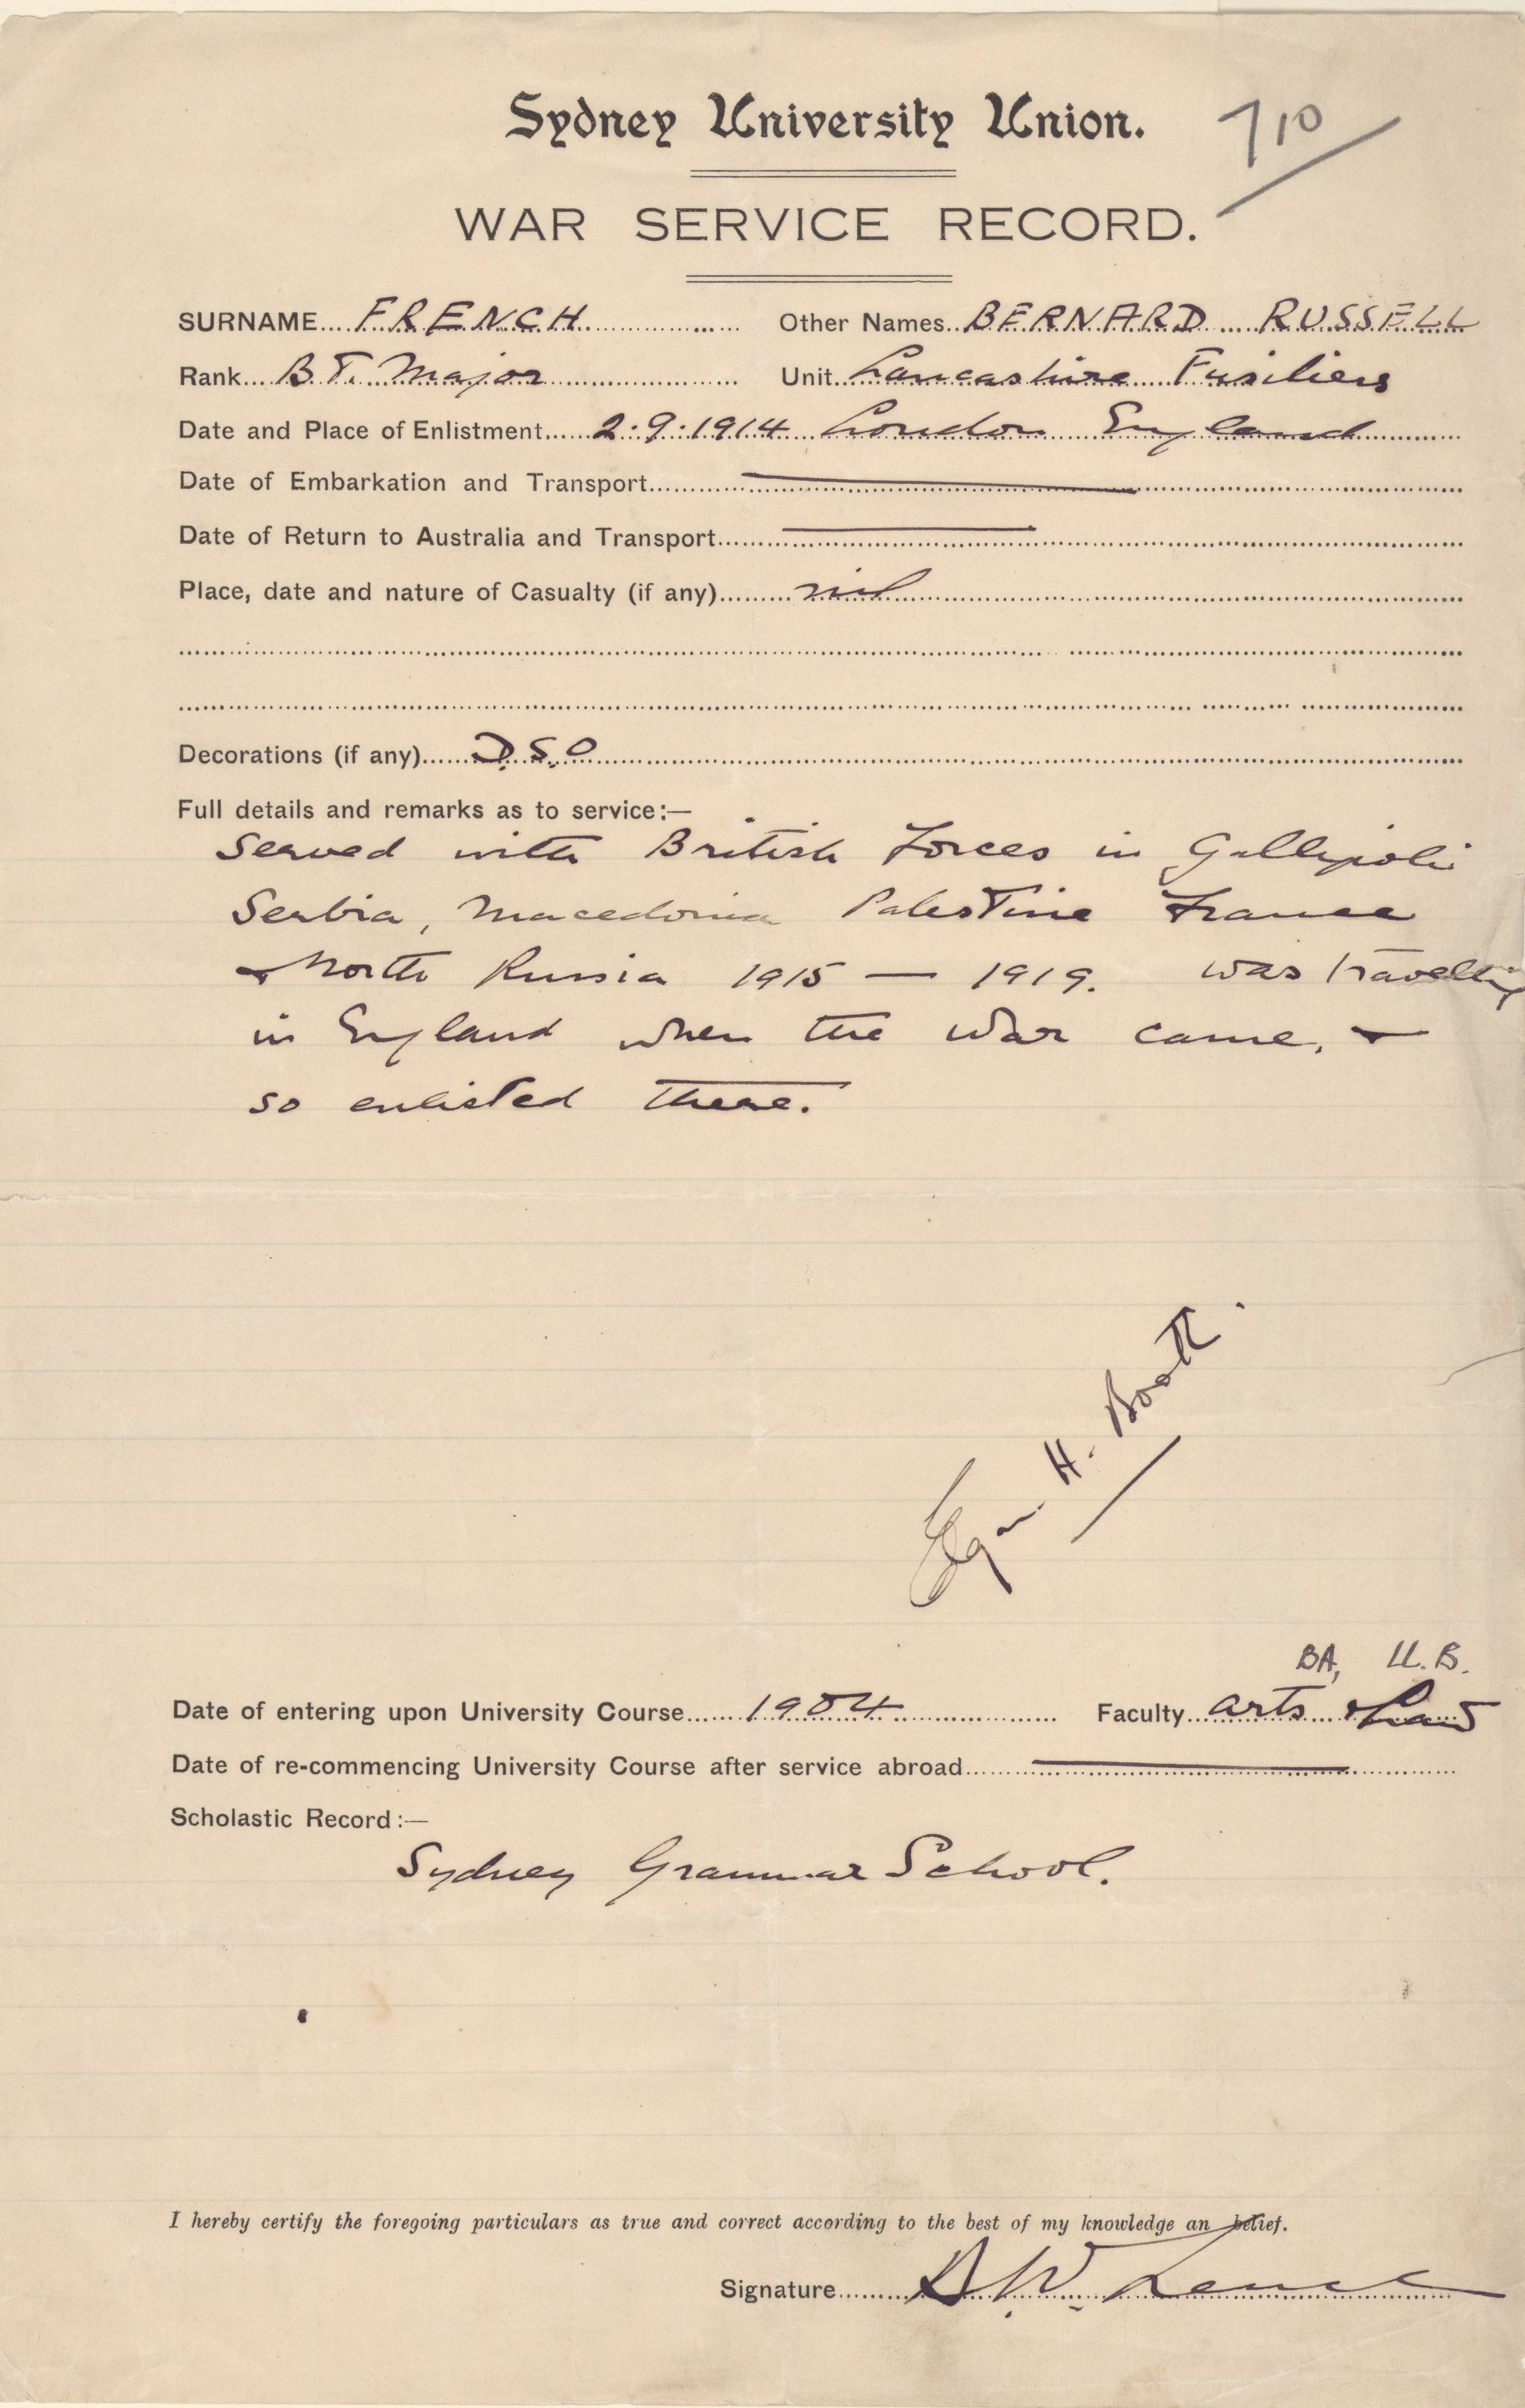 Sydney University Union.
710
WAR SERVICE RECORD.
SURNAME.... FRENCH Other Names.. BERNARD RUSSELL
Rank... BT. Major Unit.. Lancashire Fusiliers
Date and Place of Enlistment..... 2.9.1914 London England
Date of Embarkation and Transport
Date of Return to Australia and Transport
Place, date and nature of Casualty (if any) nil
Decorations (if any) D.S.O
Full details and remarks as to service:—
Served with British Forces in Gallipoli
Serbia, Macedonia Palestine France
& North Russia 1915 — 1919. was travelling
in England when the war came, &
so enlisted there.
H. Booth.
BA, LL.B.
Date of entering upon University Course 1904 Faculty Arts & Law
Date of re-commencing University Course after service abroad
Scholastic Record:—
Sydney Grammar School.
I hereby certify the foregoing particulars as true and correct according to the best of my knowledge an belief.
Signature